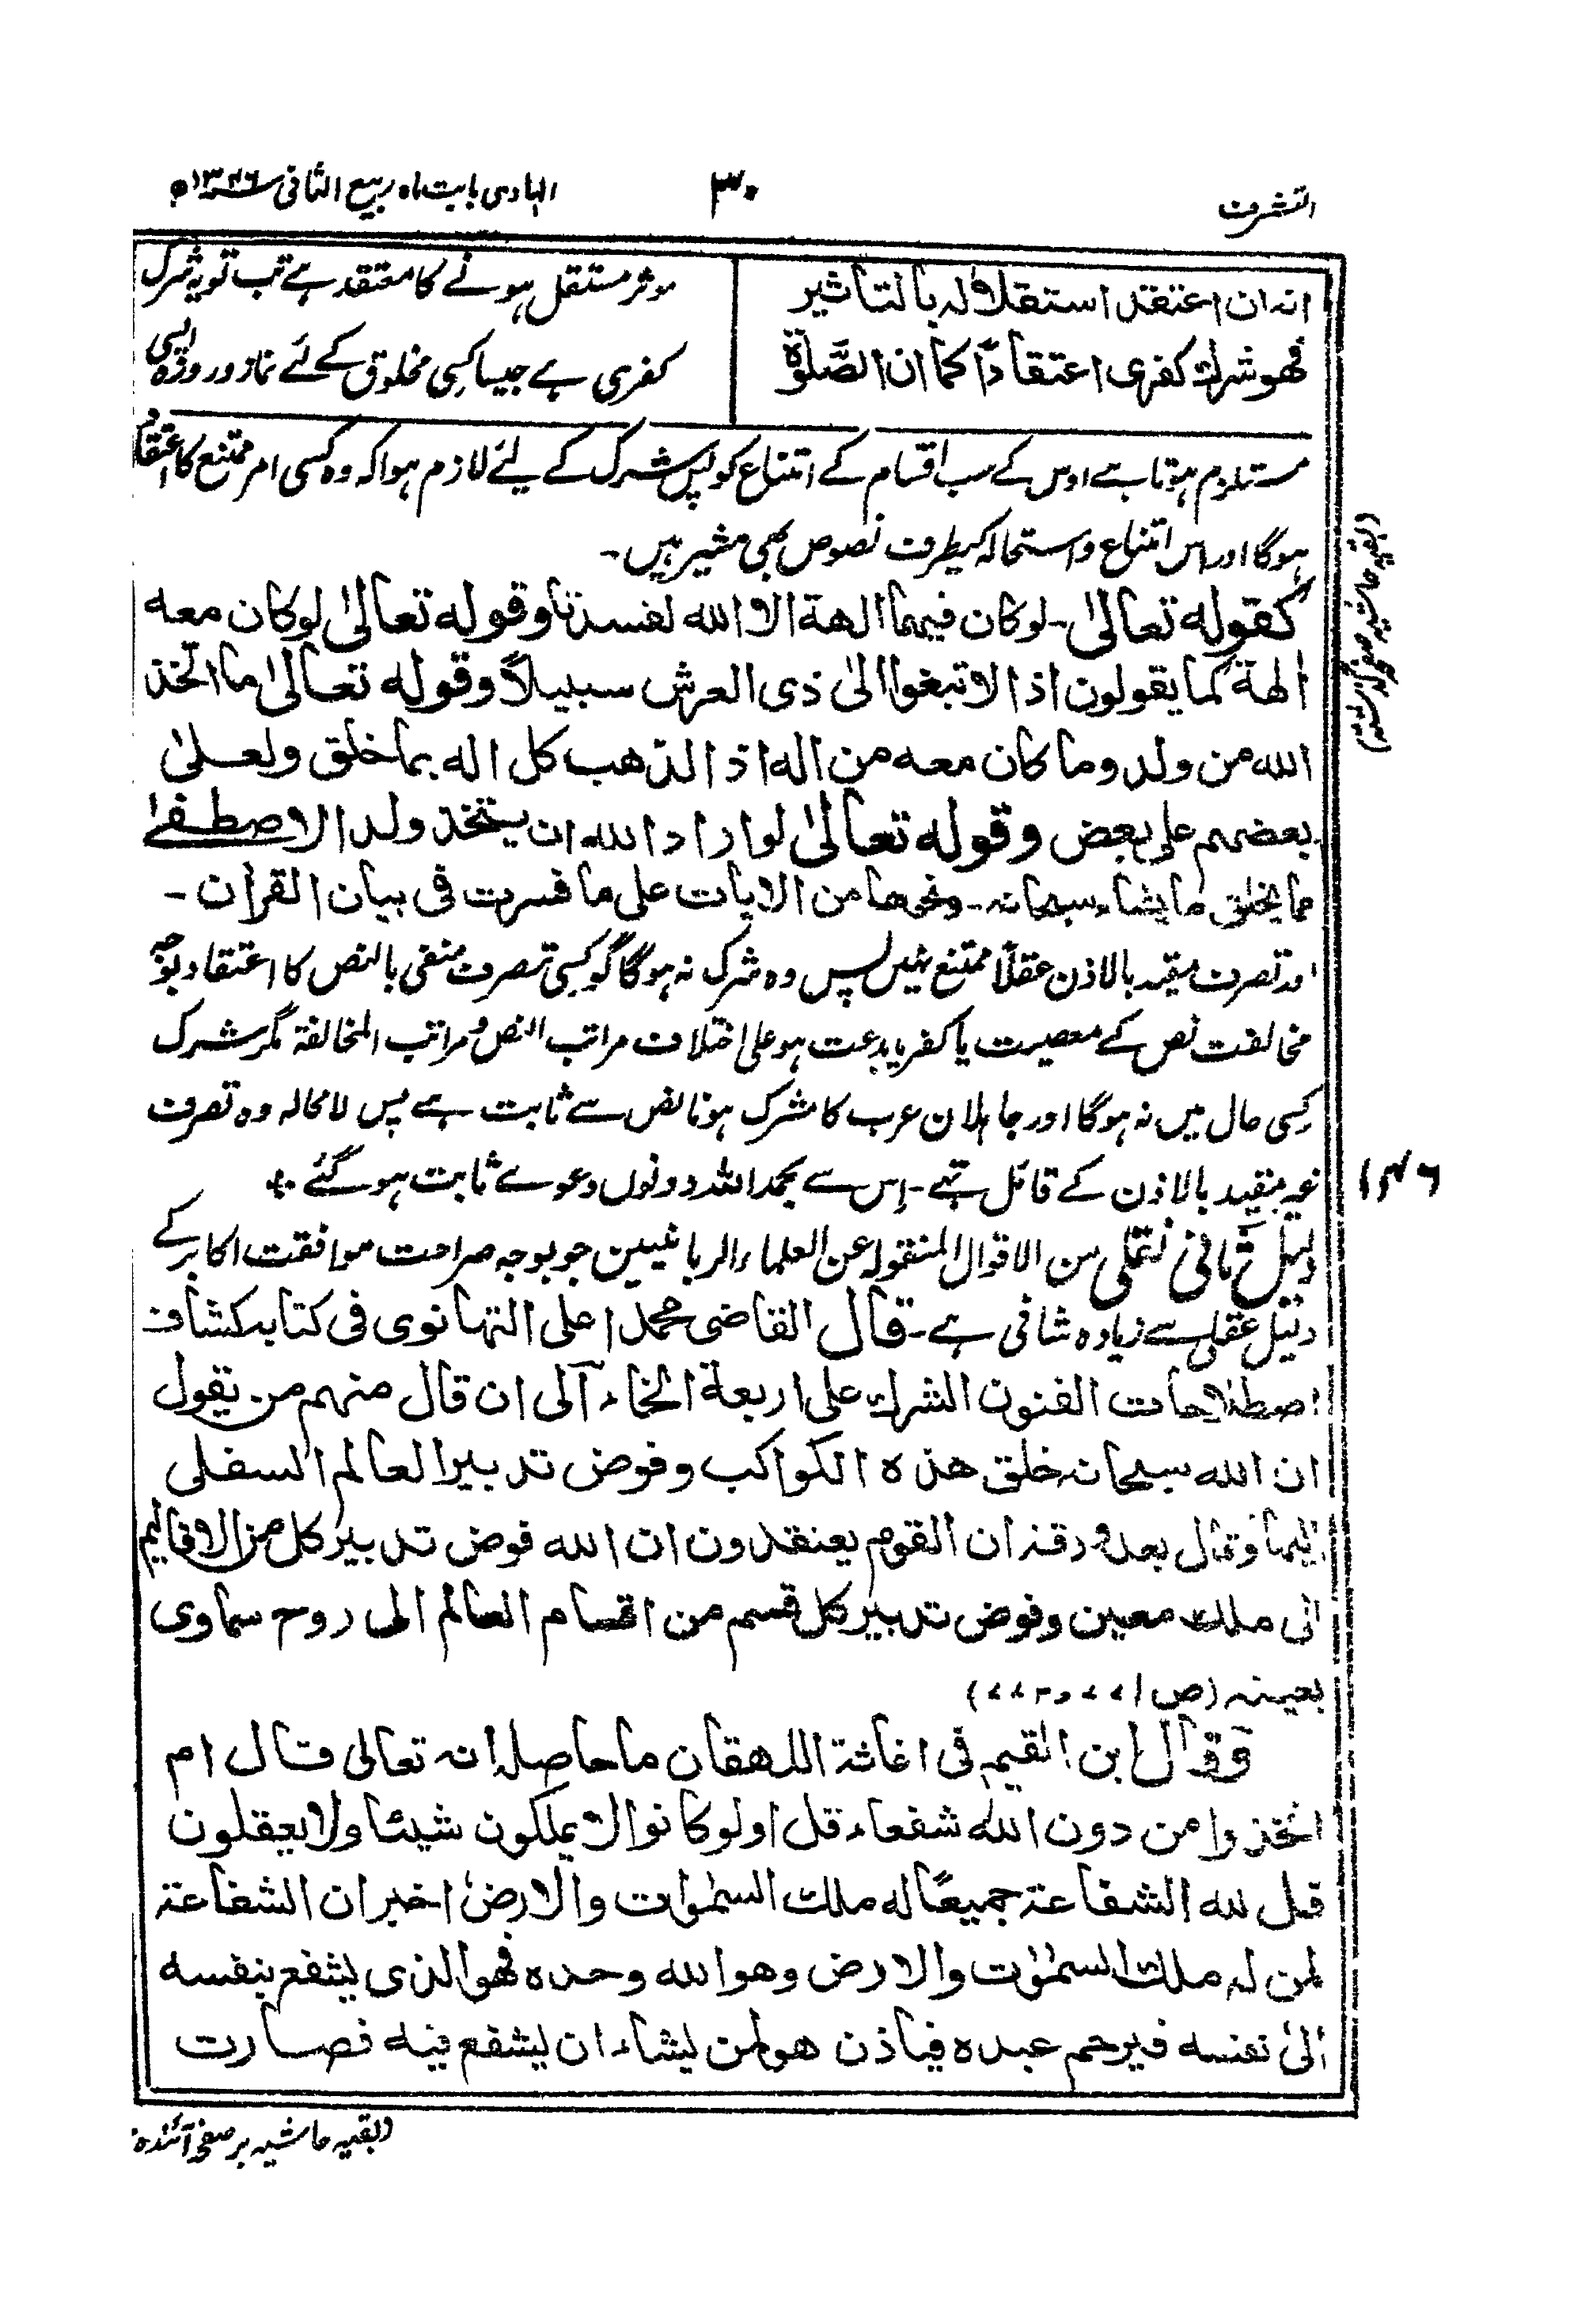 التشرف
۳۰
الہادی بابت ماہ ربیع الثانی ۱۳۴۶ھ
انہ ان اعتقد استقلالہ بالتاثیر
فھو شرك کفری اعتقادًا کما ان الصَّلوٰۃ
موثر مستقل ہونے کا معتقد ہے تب تو یہ شرک
کفری ہے جیسا کسی مخلوق کے لئے نماز و روزہ ایسی
مستلزم ہوتا ہے اوس کے سب اقسام کے امتناع کو پس شرک کے لیئے لازم ہوا کہ وہ کسی امر ممتنع کا اعتقاد
ہوگا اور اس امتناع و استحالہ کیطرف نصوص بھی مشیر ہیں۔
کقولہ تعالیٰ۔ لو کان فیھما الھۃ الا اللہ لفسدتا وقولہ تعالیٰ لو کان معہ
اٰلھۃ کما یقولون اذا لابتغوا الیٰ ذی العرش سبیلاً وقولہ تعالیٰ ما اتخذ
اللہ من ولد وما کان معہ من الہ اذا لذھب کل الہ بما خلق ولعلیٰ
بعضھم علی بعض وقولہ تعالیٰ لو اراد اللہ ان یتخذ ولدا لاصطفیٰ
مما یخلق ما یشاء سبحانہ۔ ونحوھا من الایات علی ما فسرت فی بیان القراٰن۔
اور تصرف مقید بالاذن عقلاً ممتنع نہیں پس وہ شرک نہ ہوگا گو کسی تصرف منفی بالنص کا اعتقاد بوجہ
مخالفت نص کے معصیت یا کفر یا بدعت ہو علی اختلاف مراتب النص و مراتب المخالفۃ مگر شرک
کسی حال میں نہ ہوگا اور جاہلان عرب کا مشرک ہونا نص سے ثابت ہے پس لامحالہ وہ تصرف
غیر مقید بالاذن کے قائل تہے۔ اِس سے بحمد اللہ دونوں دعوے ثابت ہوگئے۔
دلیل ثانی نقلی من الاقوال المنقولہ عن العلماء الربانیین جو بوجہ صراحت موافقت اکابر کے
دلیل عقلی سے زیادہ شافی ہے۔ قال القاضی محمد اعلی التہانوی فی کتابہ کشاف
اصطلاحات الفنون الشرك علی اربعۃ انحاء الی ان قال منھم من یقول
ان اللہ سبحانہ خلق ھذہ الکواکب وفوض تدبیر العالم السفلی
الیھا وقال بعد ورقۃ ان القوم یعتقدون ان اللہ فوض تدبیر کل من الاقالیم
الی ملك معین وفوض تدبیر کل قسم من اقسام العالم الی روح سماوی
بعینہ (ص ۷۷۱ و ۷۷۳)
وقال ابن القیم فی اغاثۃ اللھفان ما حاصلہ انہ تعالی قال ام
اتخذوا من دون اللہ شفعاء قل اولو کانوا لا یملکون شیئا ولا یعقلون
قل للہ الشفاعۃ جمیعًا لہ ملك السمٰوات والارض اخبر ان الشفاعۃ
لمن لہ ملك السمٰوٰت والارض وھو اللہ وحدہ فھو الذی یشفع بنفسہ
الیٰ نفسہ فیرحم عبدہ فیاذن ھو لمن یشاء ان یشفع فیہ فصارت
(بقیہ حاشیہ صفحہ گذشتہ)
۱۴۶
(بقیہ حاشیہ بر صفحہ آئندہ